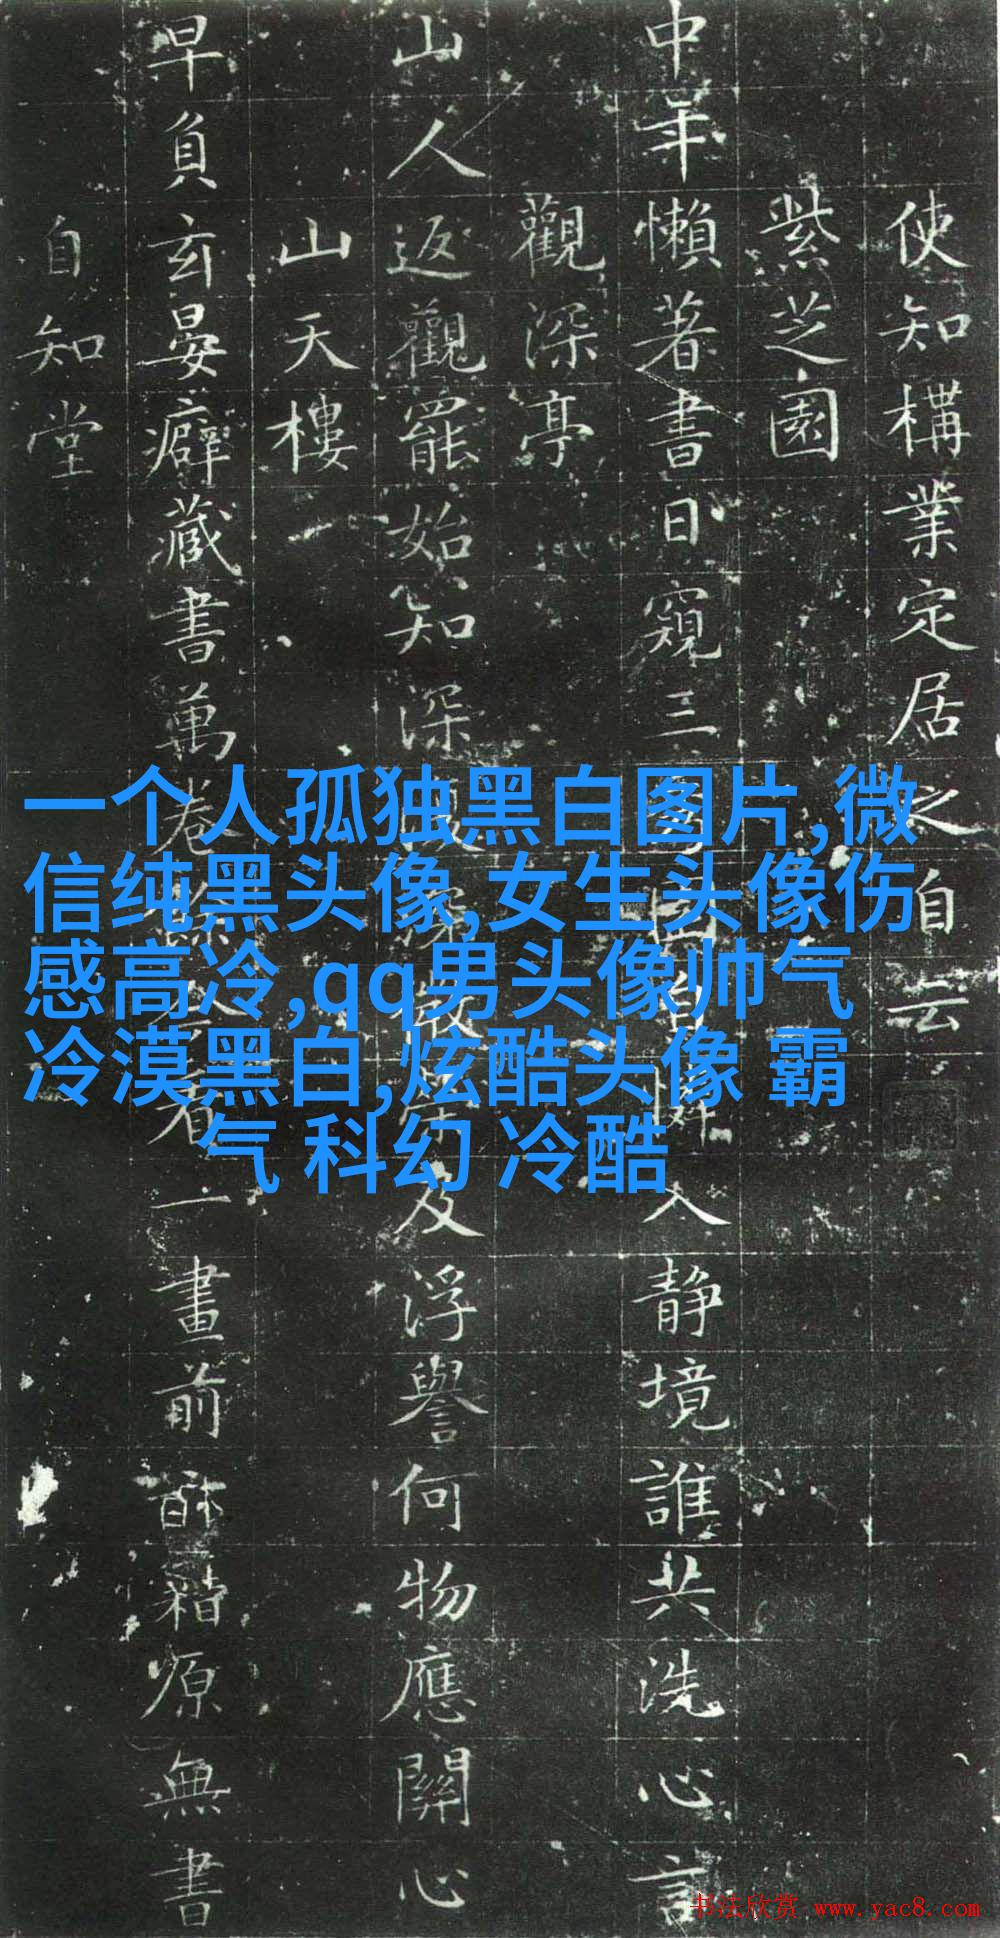 使知構業定居之自云
紫芝園
中年懶著書日窺三
入靜境誰共洗心言
觀深亭
山人返觀罷始知深
及浮譽何物應關心
山天樓
早負玄晏癖藏書萬卷
者一畫前
籍原無書
自知堂
一个人孤独黑白图片,微
信纯黑头像,女生头像伤
感高冷,qq男头像帅气
冷漠黑白,炫酷头像 霸
气 科幻 冷酷
书法欣赏 www.yac8.com